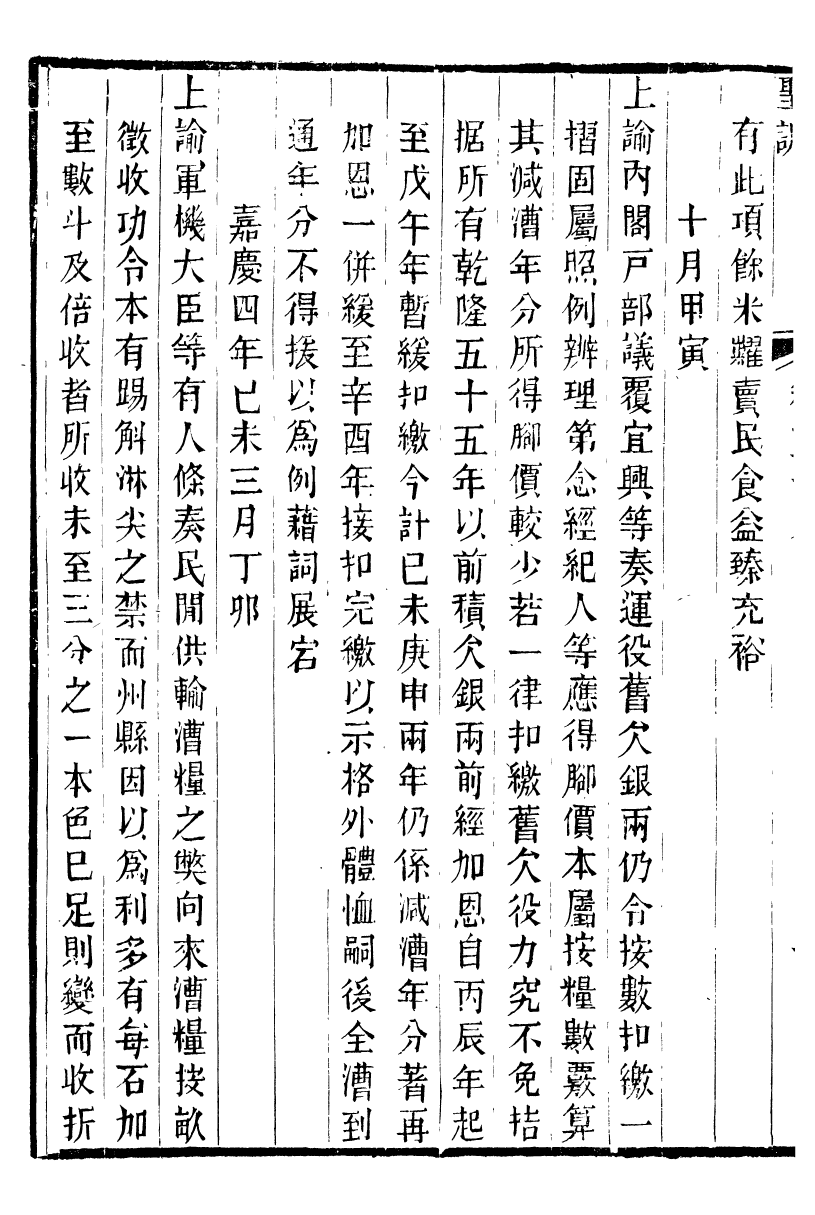 聖訓
有此項餘米糶賣民食益臻充裕
十月甲寅
上諭內閣戸部議覆宜興等奏運役舊欠銀兩仍令按數扣繳一
摺固屬照例辦理第念經紀人等應得腳價本屬按糧數覈算
其減漕年分所得腳價較少若一律扣繳舊欠役力究不免拮
据所有乾隆五十五年以前積欠銀兩前經加恩自丙辰年起
至戊午年暫緩扣繳今計已未庚申兩年仍係減漕年分著再
加恩一併緩至辛酉年接扣完繳以示格外體恤嗣後全漕到
通年分不得援以爲例藉詞展宕
嘉慶四年已未三月丁卯
上諭軍機大臣等有人條奏民間供輸漕糧之獘向來漕糧按畝
徵收功令本有踢斛淋尖之禁而州縣因以爲利多有每石加
至數斗及倍收者所收未至三分之一本色已足則變而收折